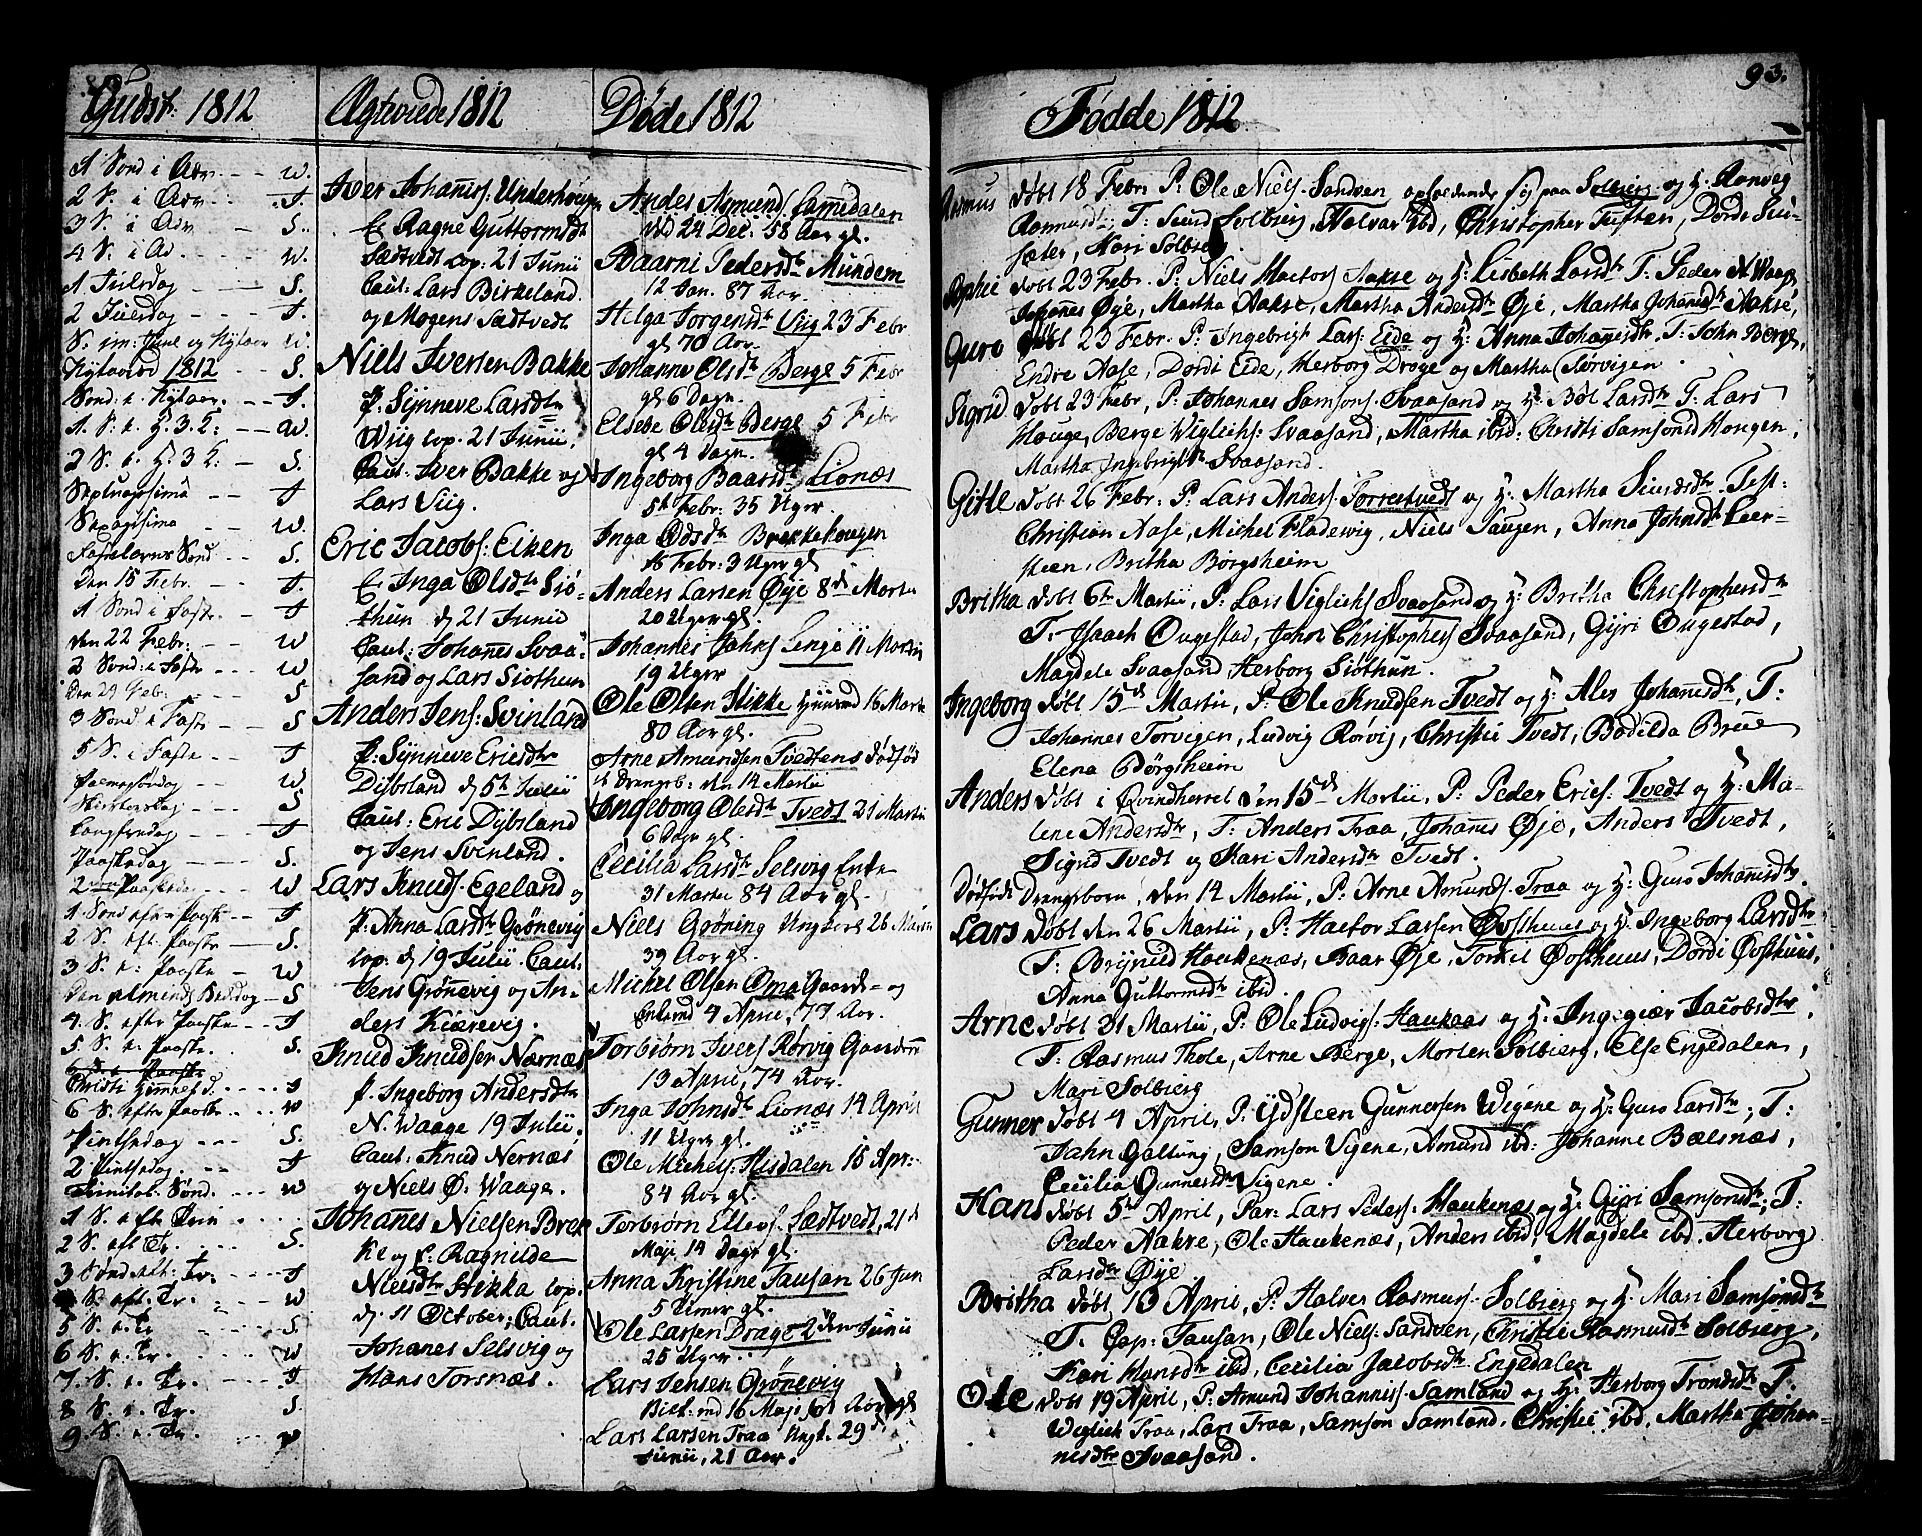 93.
Gudst. 1812
1 Sond i Adv - - - W.
2 S. i Adv - - - J.
3 S. i Adv - S.
4 S. i Ad. - W.
1 Juledag - - - S.
2 Juledag - - - J.
S. im: Juul og Nytaar W.
Nytaarsd 1812 - - S.
Sond: e. Nytaar. - J.
1 S. e. H. 3 K: - - W.
2 S. e. H. 3 K: - S.
Septuagesima - - J
Sexagesima - - W.
Fastelavns Sond - S.
Den 15 Febr. - - J.
1 Sond i Faste - - J
Den 22 Febr: - - W
2 Sond: i Faste - - W
Den 29 Febr: - - S
3 Sond i Faste - - S
5 S. i Faste - - J
Palmesøndag - - W
Skiertorsdag - S
Langfredag - - J
Paaskedag - - - S.
2 Paaskedag - - W
1 Sond efter Paaske - J
2 S. eft. Paaske - S.
3 S. e: Paaske - W
Den Almind: Bededag - S
4. S. efter Paaske - - J
5 S. e. Paaske. S.
Christi Himmelf. d. - - - J
6 S. efter Paaske - - W
Pintsedag - - - S.
2 Pintsedag - - J
Trinitat. Sønd. - - - W
1 S. efter Trin - - -
2 S. eft Tr. - - - S.
3 Sønd eft: Tr. - - - J
S. eft. Tr. - - - W
5 S. e. Tr - - - S.
6 S. e. Tr. - - - W
7. S. e Tr. - - - J
8 S. e. Tr. - - - S.
9 S. e Tr. - - - W
Ægteviede 1812
Iver Johannes: Underhougen
E. Ragne Guttormsdt
Sædtvedt cop: 21 Junii
Caut: Lars Birkeland.
og Mogens Sædtvedt
Niels Iversen Bakke
P. Synneve Larsdtr
Wiig cop. 21 Junii,
Caut: Iver Bakke og
Lars Viig.
Eric Jacobs: Eiken
E. Inga Olsdtr Siø-
thun d 21 Junio
Caut: Johannes Svaa-
sand og Lars Siothun
Anders Jens: Svinland
P. Synneve Ericsdtr
Dybsland d 5te Julii
Caut: Eric Dybsland
og Jens Svinland.
Lars Knuds: Egeland og
P. Anna Larsdtr Grønevig
cop: d 19 Julii. Caut:
Jens Grønevig og An-
ders Kiærevig.
Knud Knudsen Nærnæs
P. Ingeborg Andersdtr
N. Waage 19 Julii,
Caut: Knud Nernæs
og Niels Ø: Waage.
Johannes Nielsen Brek
ke og P. Ragnilde
Nielsdtr Stikka cop.
d. 11 October, Caut:
Johanes Selsvig og
Hans Torsnæs.
Døde 1812
Andes Asmunds
24 Dec: 58 Aar gl.
Baarni Pedersdtr Mundem
12 Jan. 87 Aar.
Helga Jorgensdtr Viig 23 Febr
gl 70 Aar.
Johanne Olsdtr Berge 5 Febr
gl 6 Dagr.
Elsebe Olsdtr Berge 5 Febr
gl 4 Dagr.
Ingeborg Baarsdtr Lionæs
5te Febr: 35 Uger.
Inga Odsdtr Brekkehougen
Febr: 3 Uger gl
Anders Larsen Øye 8de Martii
20 Uger gl.
Johannes Johns Lenge 11 Martii
19 Uger
Ole Olsen Stikke Huusmd 16 Martii
80 Aar gl.
Arne Amundsen Tvedtens dødfød
t Drengeb: den 14 Martii
Ingeborg Olsdtr Tvedt 21 Martii
6 Dagr gl.
Cecilia Larsdtr Selsvig Enke
31 Martii 84 Aar gl.
Niels Grøning Ungkarl 26 Martii
39 Aar gl.
Michel Olsen Oma Gaards- og
Enkemd 4 April, 77 Aar.
Torbiørn Ivers Rørvig Gaardm
13 April, 74 Aar.
Inga Johnsdtr Lionæs 14 April
11 Uger gl.
Ole Michels: Hisdalen 15 Apr:
84 Aar gl.
Torbiørn Ellevs: Sædtvedt, 21 d
Maji 14 Dage gl.
Anna Kristine Tausan 26 Jun
5 Uger gl.
Ole Larsen Drage 2den Junii
25 Uger.
Lars Jensen Grønevig
16 Maji Aar gl
Lars Larsen Traa Ungk. 29 d
Junii, 21 Aar.
Fødde 1812
Rasmus døbt 18 Febr. P: Ole Niels: Sandven opholdende sig paa Solbierg og H: Ranveg
Rasmusdtr: T: Siurd Solbierg, Halvar ibd, Christopher Tuften, Dordi Siu-
sæter, Kari Solbierg.
Sophie døbt 23 Febr. P: Niels Hactors Aakre og H: Lisbeth Larsdtr T: Peder N Waage
Johannes Øye, Martha Aakre, Martha Andersdtr Øye, Martha Johannesdtr Aakre,
Guro døbt 23 Febr. P: Ingebrigt Lars: Eide og H: Anna Johannesdtr. T: John Berge,
Endre Aase, Dordi Eide, Herborg Drage og Martha Tørvigen.
Sigrid døbt 23 Febr, P: Johannes Samsons: Svaasand og H: Bøl Larsdtr T: Lars
Houge, Berge Wiglichs: Svaasand, Martha ibid: Christi Samsonsd Hougen,
Martha Ingebrigtsdtr Svaasand.
Gitle døbt 26 Febr: P: Lars Anders: Torsretvedt og H: Martha Siursdtr. Test-
Christian Aase, Michel Fladevig, Niels Haugen, Anna Johnsdtr Leer-
steen, Britha Børgsheim
Britha døbt 6te Martii, P: Lars Viglichs Svaasand og H: Britha Christophersdtr
T: Isaach Ougestad, John Christophers Svaasand, Gyri Ougestad,
Magdele Svaasand Herborg Siøthun.
Ingeborg døbt 15de Martii, P: Ole Knudsen Tvedt og H: Ales Johannesdtr, T:
Johannes Torvigen, Ludvig Rørvig, Christi Tvedt, Bodilda Brue
Elena Børgsheim
Anders døbt i Qvindherret den 15de Martii, P: Peder Erics: Tvedt og H: Ma-
lene Andersdtr, T: Anders Traa, Johannes Øye, Anders Tvedt,
Sigrid Tvedt og Kari Andersdtr Tvedt.
Dødføde Drengebarn, den 14 Martii, P: Arne Amunds: Traa og H: Guro Johannesdtr.
Lars døbt den 26 Martii, P: Hactor Larsen Øosthuus og H: Ingeborg Larsdtr
T: Brynild Haukenæs, Baar Øye, Torkil Øosthuus, Dordi Øosthuus,
Anna Guttormsdtr ibid.
Arne døbt 31 Martii, P: Ole Ludvigs: Haukaas og H: Ingegiær Jacobsdtr,
T: Rasmus Thole, Arne Berge, Morten Solbierg, Else Engedalen,
Mari Solbierg
Gunner døbt 4 April, P: Ydsteen Gunnersen Wigene og H: Guro Larsdtr, T:
Jahn Galtung, Samson Vigene, Amund ibid: Johanne Bælsnæs,
Cecilia Gunnersdtr Vigene.
Hans døbt 5te April, Par: Lars Peders: Haukenæs og H: Gyri Samsonsdtr, T:
Peder Aakre, Ole Haukenæs, Anders ibid, Magdele ibd. Herborg
Larsdtr Øye
Britha døbt 13 April, P: Halver Rasmus: Solbierg og H: Mari Samsonsdtr
T: Cap: Tausan, Ole Niels: Sandven, Christie Rasmusdtr Solbierg,
Kari Hansdtr ibd, Cecilia Jacobsdtr Engedalen
Ole døbt 19 April, P: Amund Johanness: Samland og H: Herborg Trondsdtr T:
Wiglich Traa, Lars Traa, Samson Samland, Christi ibd, Martha Johan-
nesdtr Svaasand.